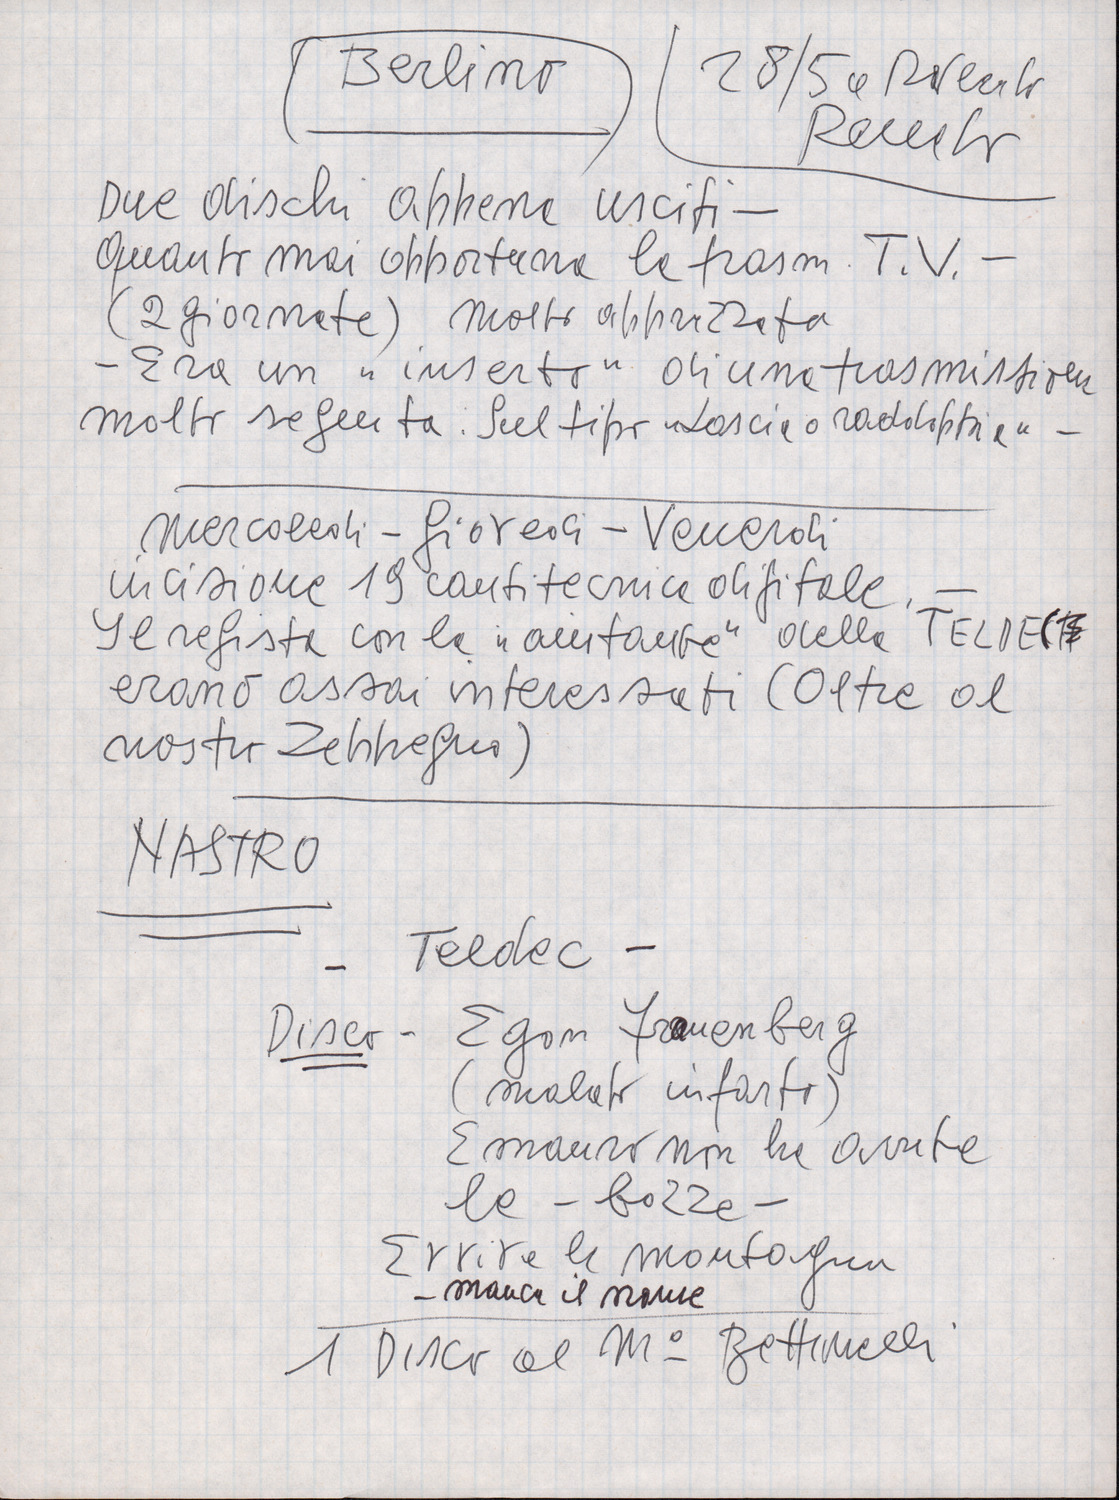 Berlino
28/5 a Rovereto
Due dischi appena usciti –
Quanto mai opportuna la trasm. T.V. –
(2 giornate) molto apprezzata
– Era un "inserto" di una trasmissione
molto seguita. Sul tipo "Lascia o raddoppia" –
Mercoledi – Giovedi – Venerdi
incisione 19 canti tecnica digitale. –
Il regista con la "aiutante" della TELDEC
erano assai interessati (Oltre al
nostro Zeppegno)
NASTRO
– Teldec –
Disco – Egon Frauenberg
(malato infarto)
E mauro non ha avute
le – bozze –
Evviva la montagna
– manca il nome
1 Disco al Mº Bettinelli